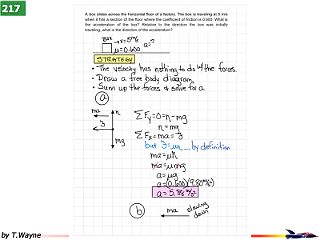 217
A box slides across the horizontal floor of a factory. The box is traveling at 5 m/s
when it hits a section of the floor where the coefficient of friction is 0.600. What is
the acceleration of the box? Relative to the direction the box was initially
traveling, what is the direction of the acceleration?
Box
→ v = 5 m/s
μ = 0.600 a = ?
STRATEGY
• The velocity has nothing to do w/ the forces.
• Draw a free body diagram
• Sum up the forces & solve for a
a
ma
n
mg
ΣFy = 0 = n - mg
n = mg
ΣFx = ma = f
but f = μn ... by definition
ma = μn
ma = μmg
a = μg
a = (0.600)(9.80 m/s²)
a = 5.88 m/s²
b
ma
slowing
down
by T.Wayne